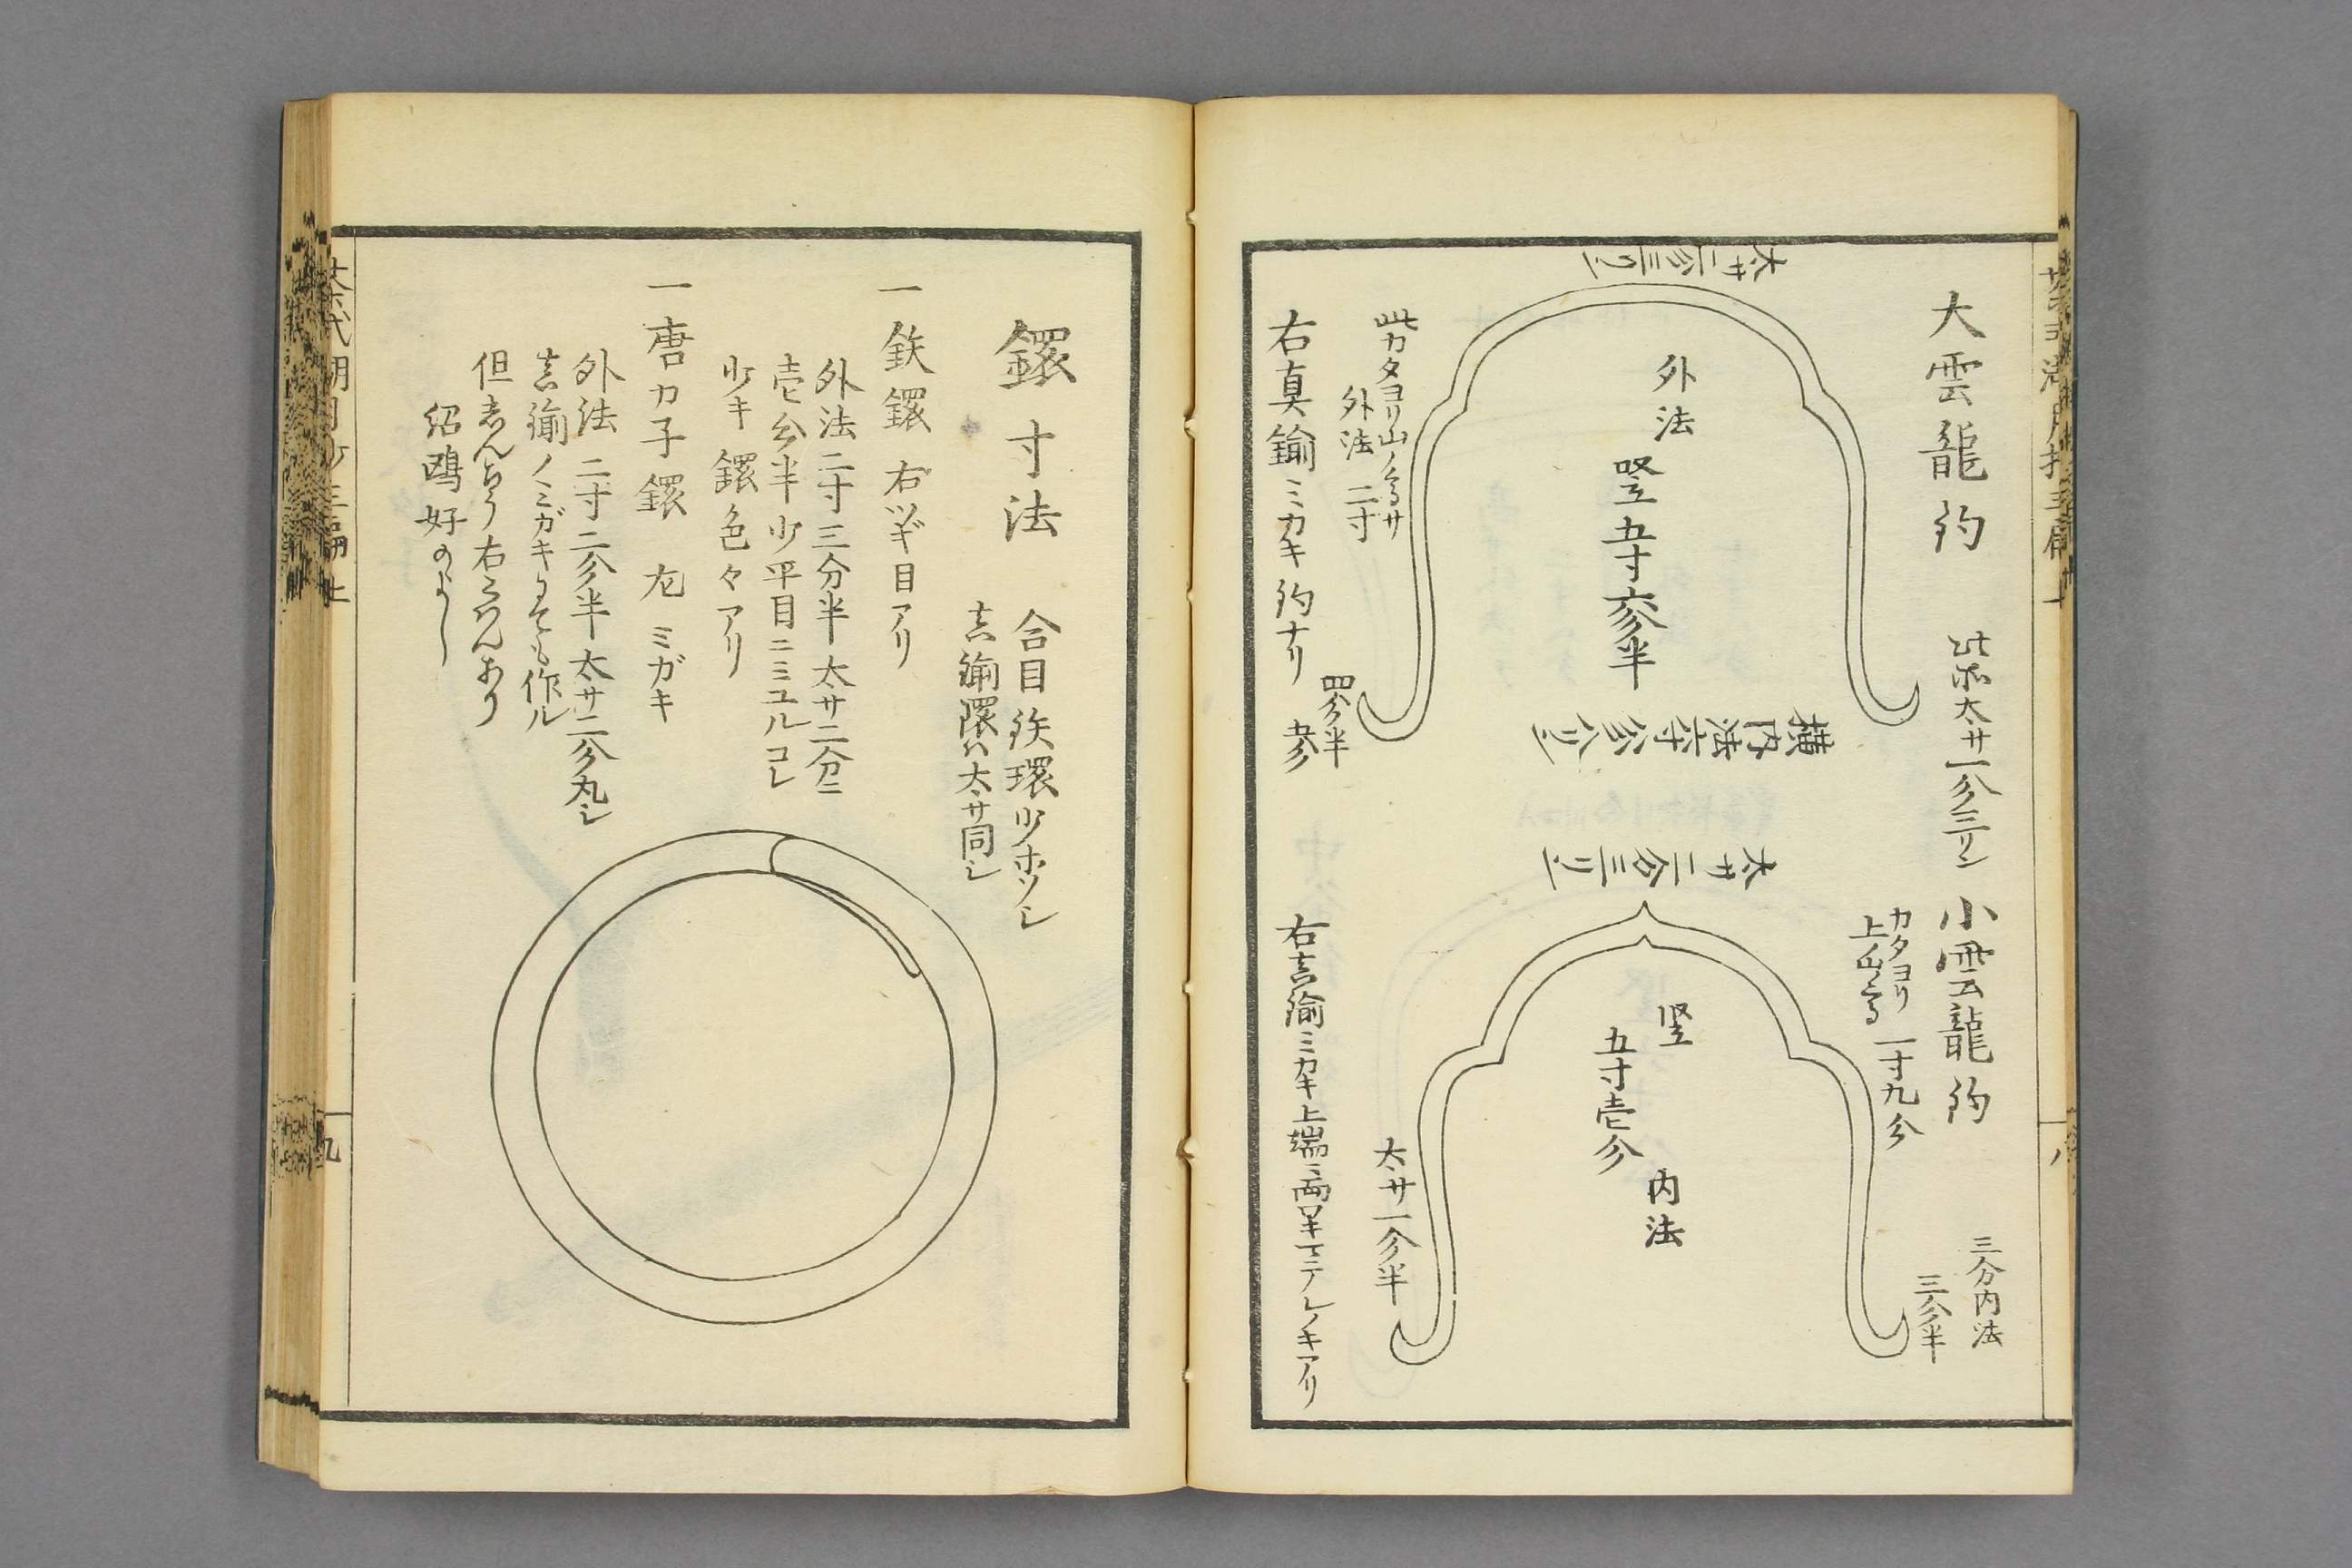 大雲龍釣
此所太サ一分三リン
太サ二分三リン
外法
竪五寸六分半
横内法六寸八分八リン
此カタヨリ山ノ高サ
外法二寸
右真鍮ミカキ釣ナリ
四分半
小雲龍釣
カタヨリ
上ノ山高
一寸九分
三分内法
三分半
太サ二分三リン
竪
五寸壱分
内法
太サ一分半
鐶寸法
合目鉄環少ホソシ
真鍮環ハ太サ同シ
一鉄鐶 右ツギ目アリ
外法二寸三分半太サ二分ニ
壱分半少平目ニミユルコレ
少キ鐶色々アリ
一唐カ子鐶 尤ミガキ
外法二寸二分半太サ二分丸シ
真鍮ノミガキにても作ル
紹鴎好のよし
茶式湖月抄三編上
九